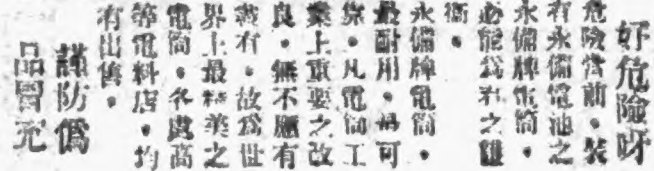 好危險呀
危險當前。裝
有永備電池之
永備牌電筒。
必能為君之護
衞。
永備牌電筒。
最耐用。最可
靠。凡電筒工
業上重要之改
良。無不應有
盡有。故為世
界上最精美之
電筒。各處高
等電料店。均
有出售。
謹防偽
品冒充